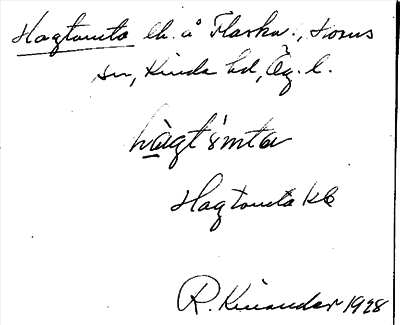 Hagtomta lh. å Flaska., Horns
sn, Kinda hd, Ög. l.
hàgt 'mta
Hagtomta kb
R. Kinander 1928